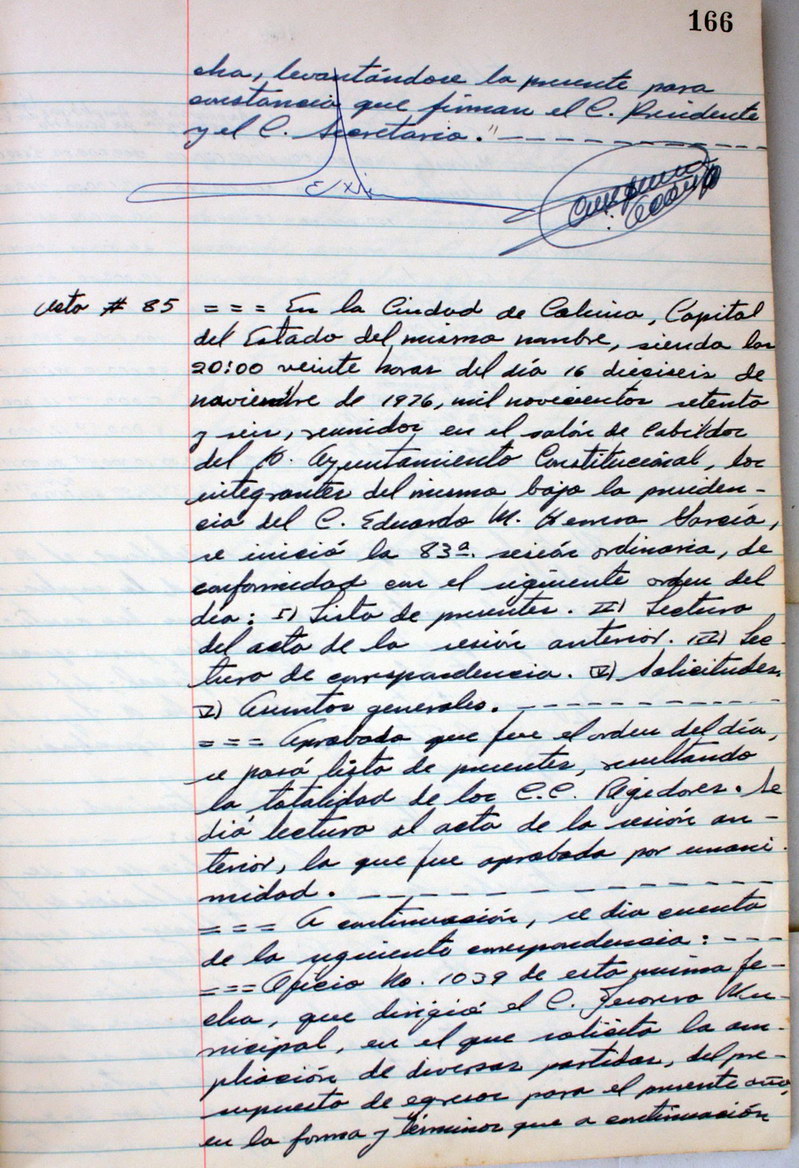 166
cha, levantándose la presente para
constancia que firman el C. Presidente
y el C. Secretario."- - - - - - - - - -
Acta # 85 = = = En la Ciudad de Colima, Capital
del Estado del mismo nombre, siendo las
20:00 veinte horas del día 16 dieciseis de
noviembre de 1976, mil novecientos setenta
y seis, reunidos en el salón de Cabildos
del H. Ayuntamiento Constitucional, los
integrantes del mismo bajo la presiden-
cia del C. Eduardo M. Herrera García,
se inició la 83ª. sesión ordinaria, de
conformidad con el siguiente orden del
día: I) Lista de presentes. II) Lectura
del acta de la sesión anterior. III) Lec-
tura de correspondencia. IV) Solicitudes.
V) Asuntos generales. - - - - - - - - - -
= = = Aprobado que fue el orden del día,
se pasó lista de presentes, resultando
la totalidad de los C.C. Regidores. Se
dió lectura al acta de la sesión an-
terior, la que fue aprobada por unani-
midad. - - - - - - - - - - - -
= = = A continuación, se dio cuenta
de la siguiente correspondencia: - - -
= = = Oficio No. 1039 de esta misma fe-
cha, que dirigió el C. Tesorero Mu-
nicipal, en el que solicita la am-
pliación de diversas partidas, del pre-
supuesto de egresos para el presente año,
en la forma y términos que a continuación